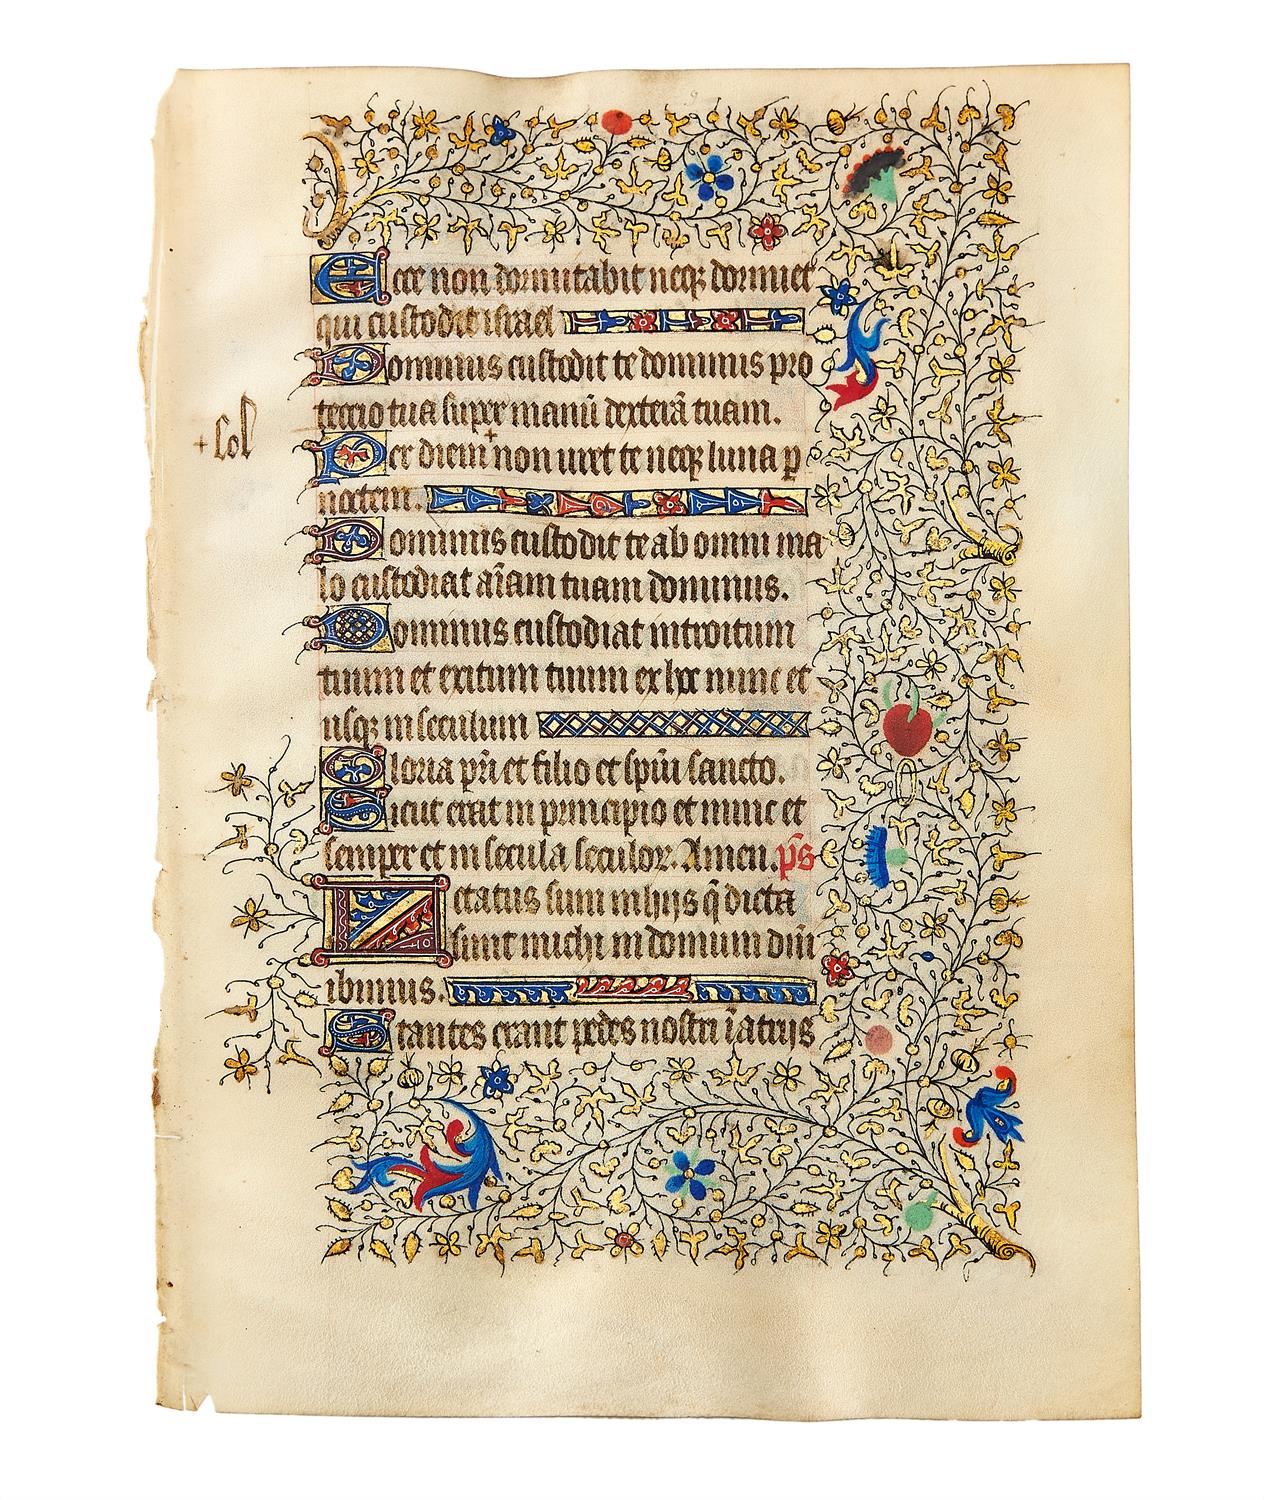 Ecce non dormitabit neq; dormiet
qui custodit israel
Dominus custodit te dominus pro
tectio tua super manū dexterā tuam.
+ sol
Per diem + non uret te neq; luna p
noctem.
Dominus custodit te ab omni ma
lo custodiat aīam tuam dominus.
Dominus custodiat introitum
tuum et exitum tuum ex hoc nunc et
usq; in seculum
Gloria pr̄i et filio et spūi sancto.
Sicut erat in principio et nunc et
semper et in secula seculoꝝ. Amen. p̄s
Letatus sum in hijs q̄ dicta
sunt michi in domum dn̄i
ibimus.
Stantes erant pedes nostri ī atrijs